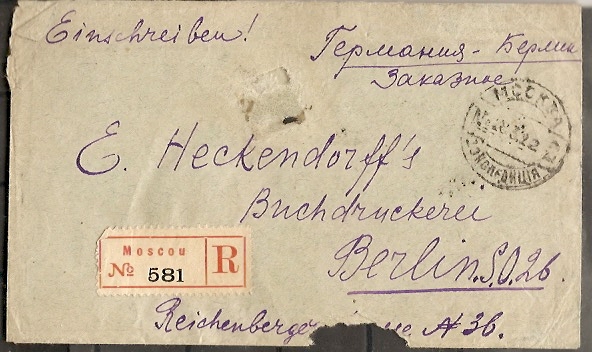 Einschreiben!
Германия - Берлин
Заказное
МОСКВА
ЭКСПЕДИЦІЯ
E. Heckendorff's
Buchdruckerei
Berlin. S.O. 26.
Moscou
№ 581
R
Reichenberger №36.